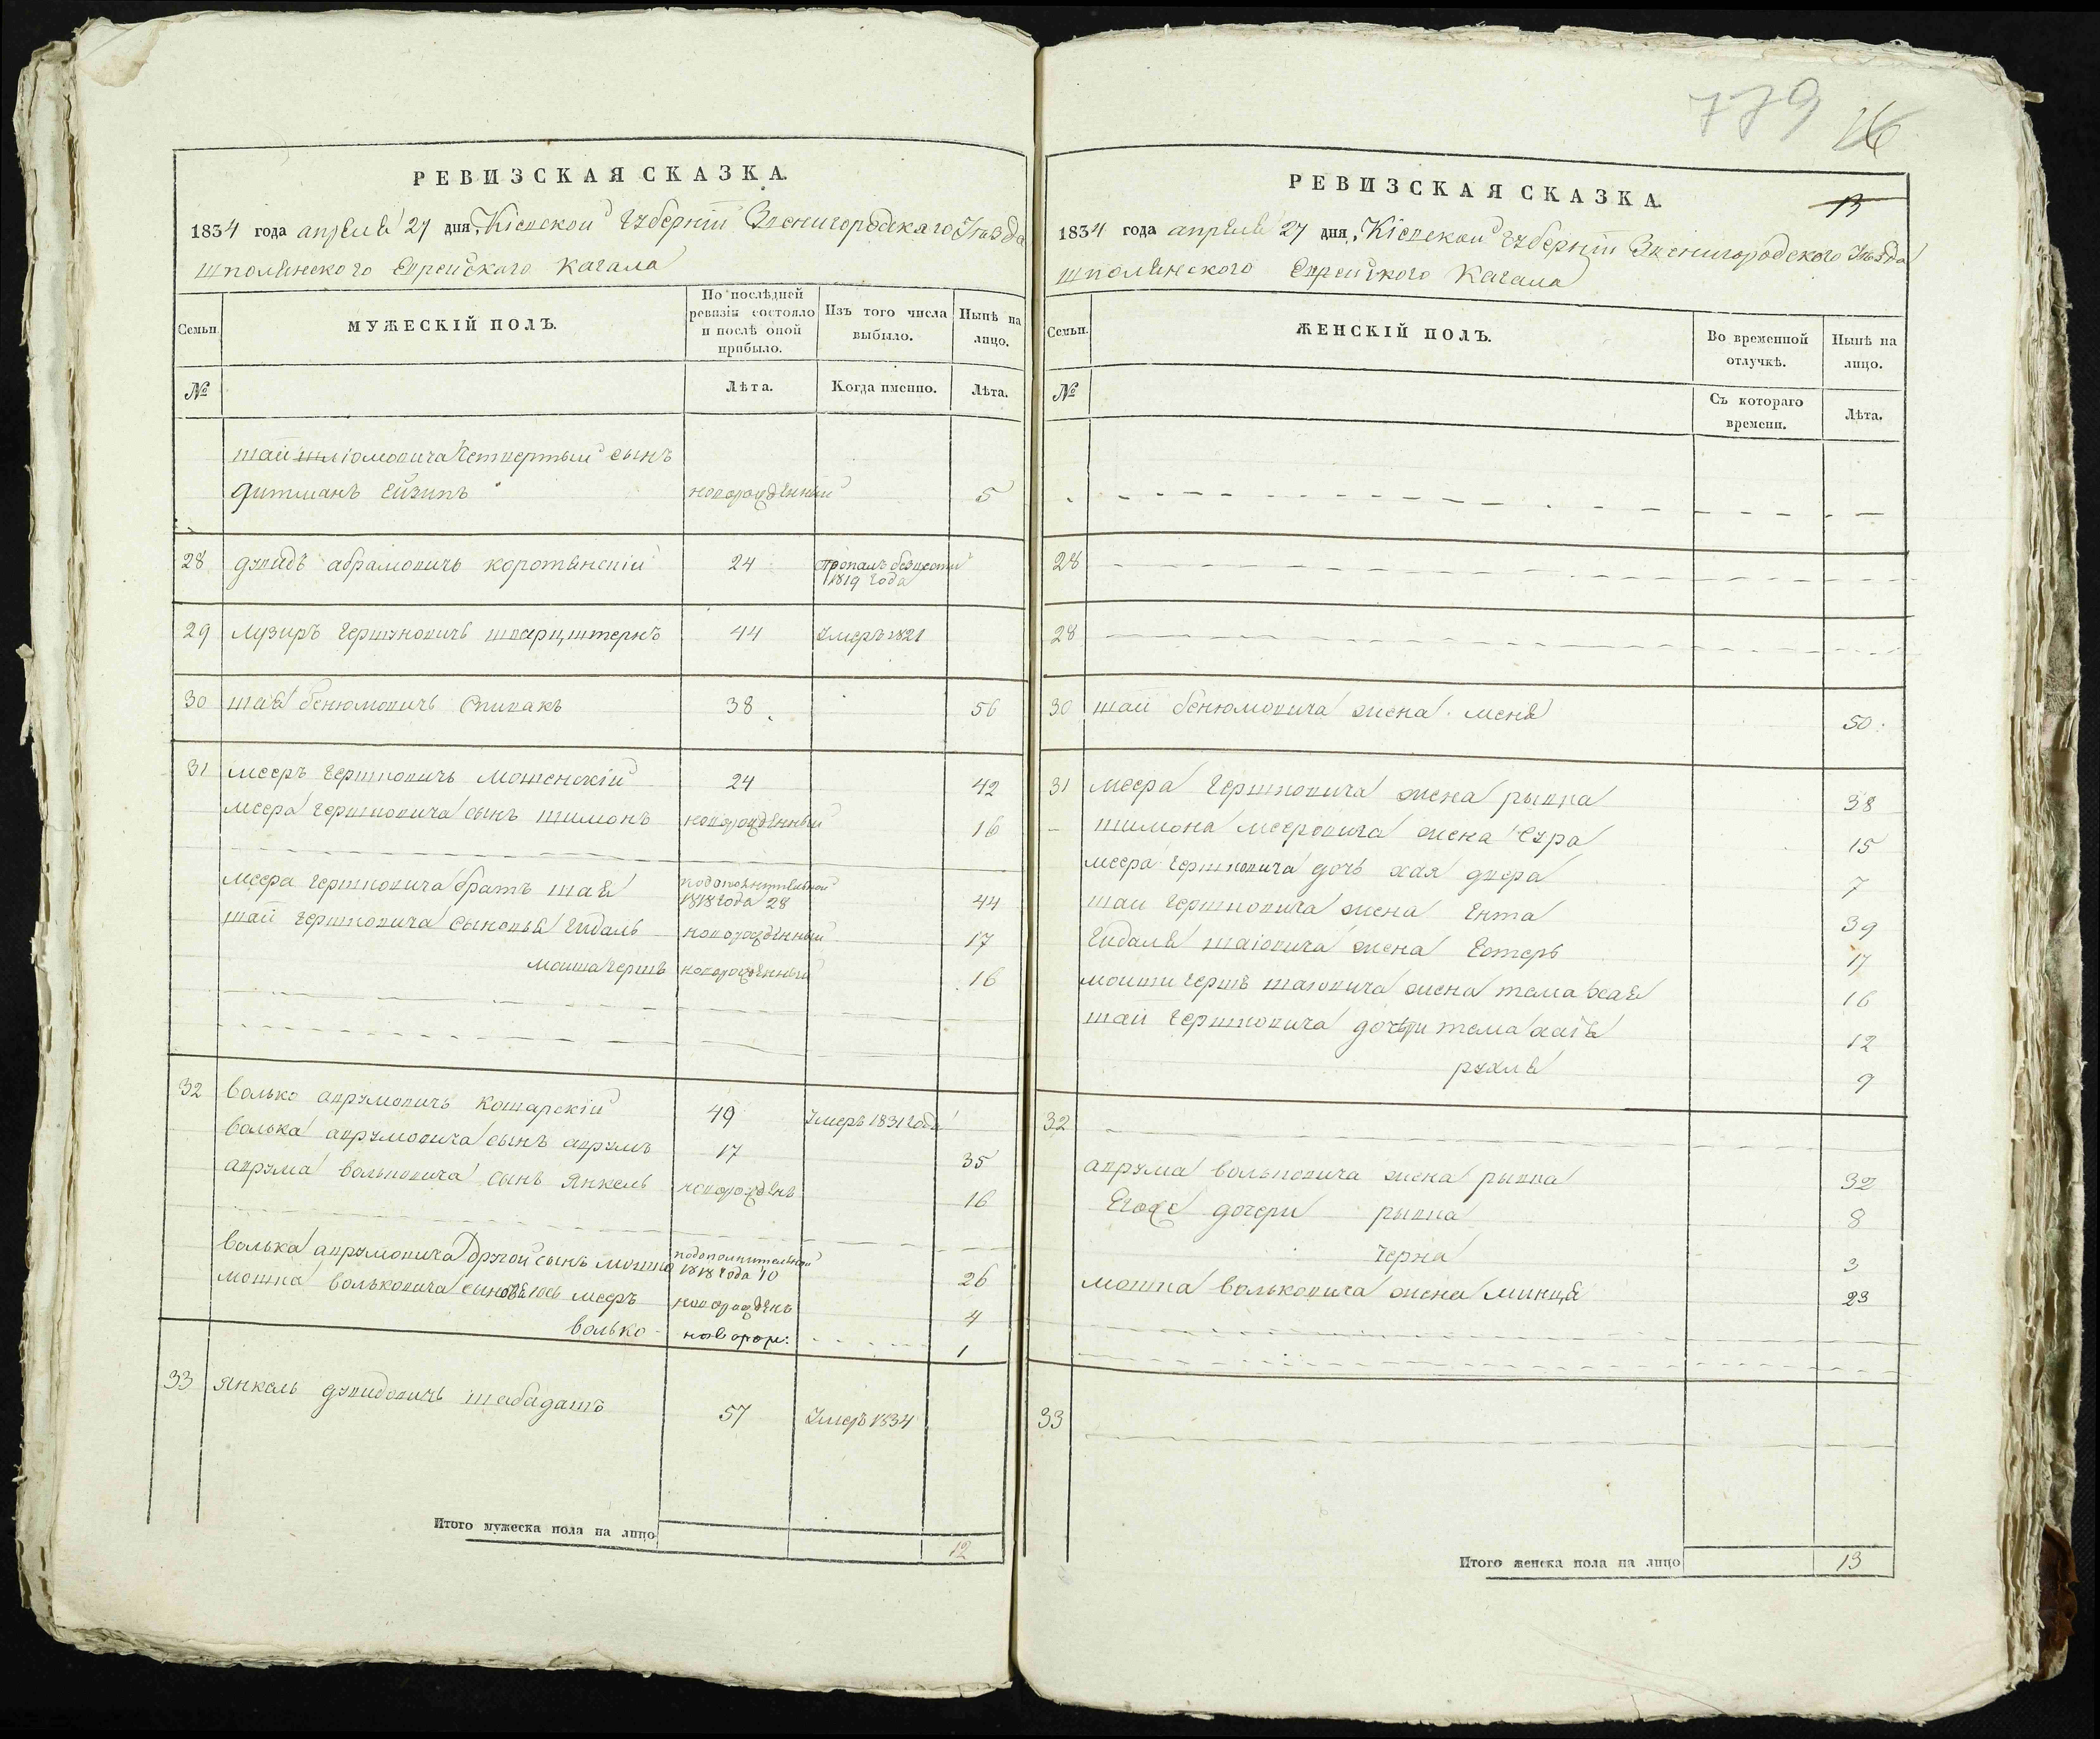 РЕВИЗСКАЯ СКАЗКА.
1834 года апреля 27 дня, Кіевской Губерніи Звенигородскаго Уезда
шполянского Еврейскаго Кагала
Семьи.
МУЖЕСКІЙ ПОЛЪ.
По послѣдней ревизіи состояло и послѣ оной прибыло.
Изъ того числа выбыло.
Нынѣ на лицо.
№
Лѣта.
Когда именно.
Лѣта.
шаи четвертый сынъ
новорожденный 5
28 давидъ абрамовичъ коротянскій 24 пропалъ безвести 1819 года
29 лузиръ гершуновичъ шварцштернъ 44 умеръ 1821
30 шая бенюмовичъ спивакъ 38 56
31 мееръ гершковичъ мошенскій 24 42
меера гершковича сынъ шимонъ новорожденный 16
меера гершковича братъ шая 1818 года 28 44
шаи гершковича сыновья гидаль новорожденный 17
мошка гершъ новорожденный 16
32 волько аврумовичъ кошарскій 49 умеръ 1831 года
волька аврумовича сынъ аврумъ 17 35
аврума вольковича сынъ янкель новорожденъ 16
волька аврумовича другой сынъ мошко 1818 года 10 26
мошка вольковича сыновья мееръ новорожденъ 4
волько новорож: 1
33 янкель давидовичъ 57 умеръ 1834
Итого мужеска пола на лицо 12
779 16
РЕВИЗСКАЯ СКАЗКА.
13
1834 года апреля 27 дня, Кіевской Губерніи Звенигородского Уезда
шполянского Еврейского Кагала
Семьи.
ЖЕНСКІЙ ПОЛЪ.
Во временной отлучкѣ.
Нынѣ на лицо.
№
Съ котораго времени.
Лѣта.
28
28
30 шаи бенюмовича жена меня 50
31 меера гершковича жена рывка 38
шимона мееровича жена сура 15
меера гершковича дочь хая двера 7
шаи гершковича жена ента 39
гидаля шаiовича жена Естеръ 17
мошки гершъ шаiовича жена тема хая 16
шаи гершковича дочери тема хаія 12
рухля 9
32
аврума вольковича жена рывка 32
Егоже дочери рывка 8
черна 3
мошка вольковича жена минця 23
33
Итого женска пола на лицо 13